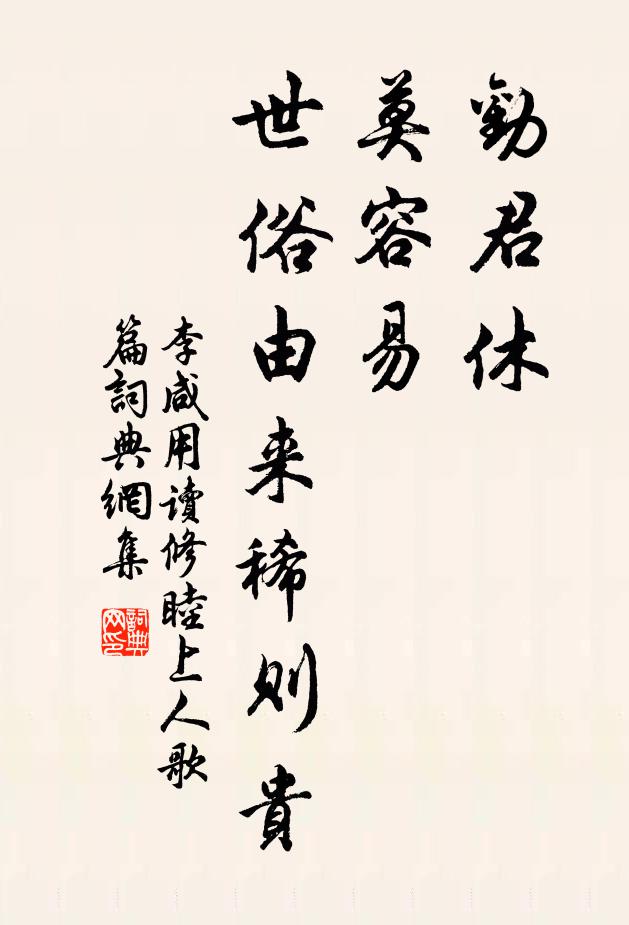 勸君休
莫容易
世俗由来稀則貴
李咸用讀修睦上人歌
篇詞典網集
詞典网印